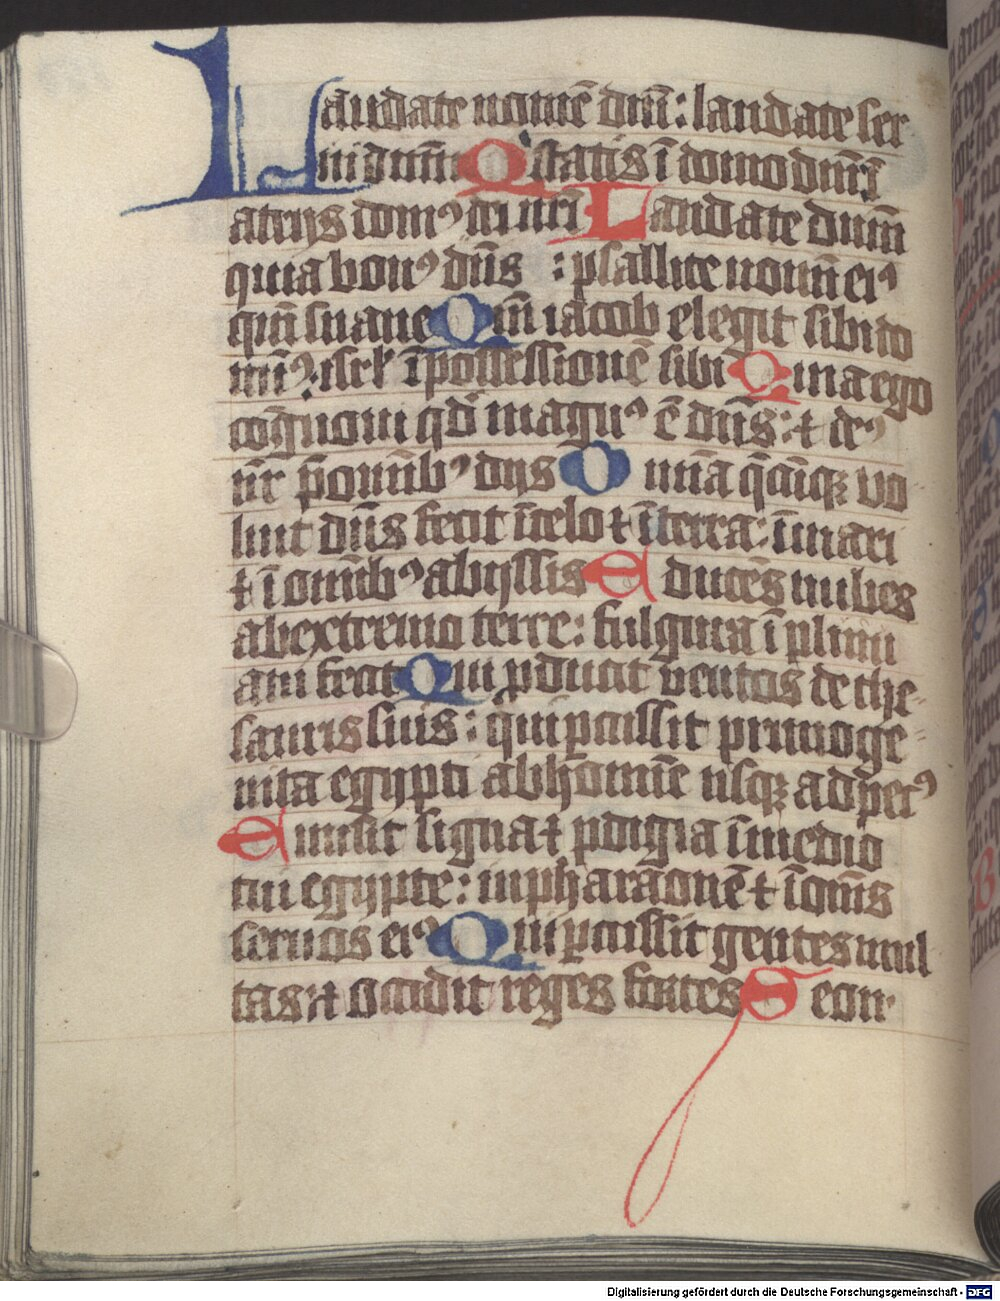 Laudate nomē dn̄i: laudate ser
ui dn̄m Q statis ī domo dn̄i ī
atrijs domꝰ dei nr̄i Laudate dn̄m
quia bonꝰ dn̄s : psallite nomī eiꝰ
qm̄ suaue Qm̄ iacob elegit sibi do
minꝰ: isrl̄ ī possessionē sibi Quia ego
cognoui qd̄ magnꝰ ē dn̄s: ⁊ deꝰ
nr̄ p̄ om̄ībꝰ dijs Omīa q̄cūqꝫ vo
luit dn̄s fecit ī celo ⁊ ī terra: ī mari
⁊ ī om̄ībꝰ abyssis Educēs nubes
ab extremo terre: fulgura ī pluui
am fecit Qui ꝓducit ventos de the
sauris suis: qui ꝑcussit primoge
nita egypti ab homīe usqꝫ ad pecꝰ
Emisit signa ⁊ ꝓdigia ī medio
tui egypte: in pharaonē ⁊ ī om̄s
seruos eiꝰ Qui ꝑcussit gentes mul
tas: ⁊ occidit reges fortes Seon
Digitalisierung gefördert durch die Deutsche Forschungsgemeinschaft - DFG